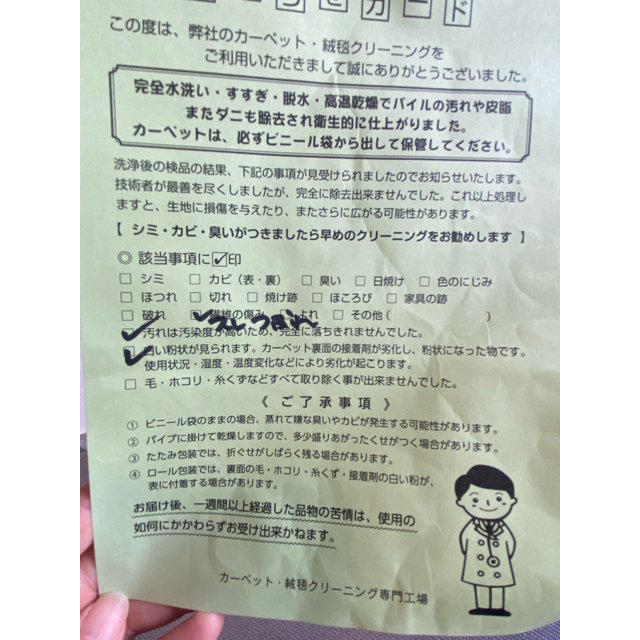 らせカード
この度は、弊社のカーペット・絨毯クリーニングを
ご利用いただきまして誠にありがとうございました。
完全水洗い・すすぎ・脱水・高温乾燥でパイルの汚れや皮脂
またダニも除去され衛生的に仕上がりました。
カーペットは、必ずビニール袋から出して保管してください。
洗浄後の検品の結果、下記の事項が見受けられましたのでお知らせいたします。
技術者が最善を尽くしましたが、完全に除去出来ませんでした。これ以上処理し
ますと、生地に損傷を与えたり、またさらに広がる可能性があります。
【 シミ・カビ・臭いがつきましたら早めのクリーニングをお勧めします 】
◎ 該当事項に☑印
□ シミ □ カビ（表・裏） □ 臭い □ 日焼け □ 色のにじみ
□ ほつれ □ 切れ □ 焼け跡 □ ほころび □ 家具の跡
□ 破れ ☑ 繊維の傷み □ よれ □ その他（ ）
スレ つぶれ
☑ 汚れは汚染度が高いため、完全に落ちきれませんでした。
☑ 白い粉状が見られます。カーペット裏面の接着剤が劣化し、粉状になった物です。
使用状況・湿度・温度変化などにより劣化が起こります。
□ 毛・ホコリ・糸くずなどすべて取り除く事が出来ませんでした。
《 ご了承事項 》
① ビニール袋のままの場合、蒸れて嫌な臭いやカビが発生する可能性があります。
② パイプに掛けて乾燥しますので、多少盛りあがったくせがつく場合があります。
③ たたみ包装では、折ぐせがしばらく残る場合があります。
④ ロール包装では、裏面の毛・ホコリ・糸くず・接着剤の白い粉が、
表に付着する場合があります。
お届け後、一週間以上経過した品物の苦情は、使用の
如何にかかわらずお受け出来かねます。
カーペット・絨毯クリーニング専門工場